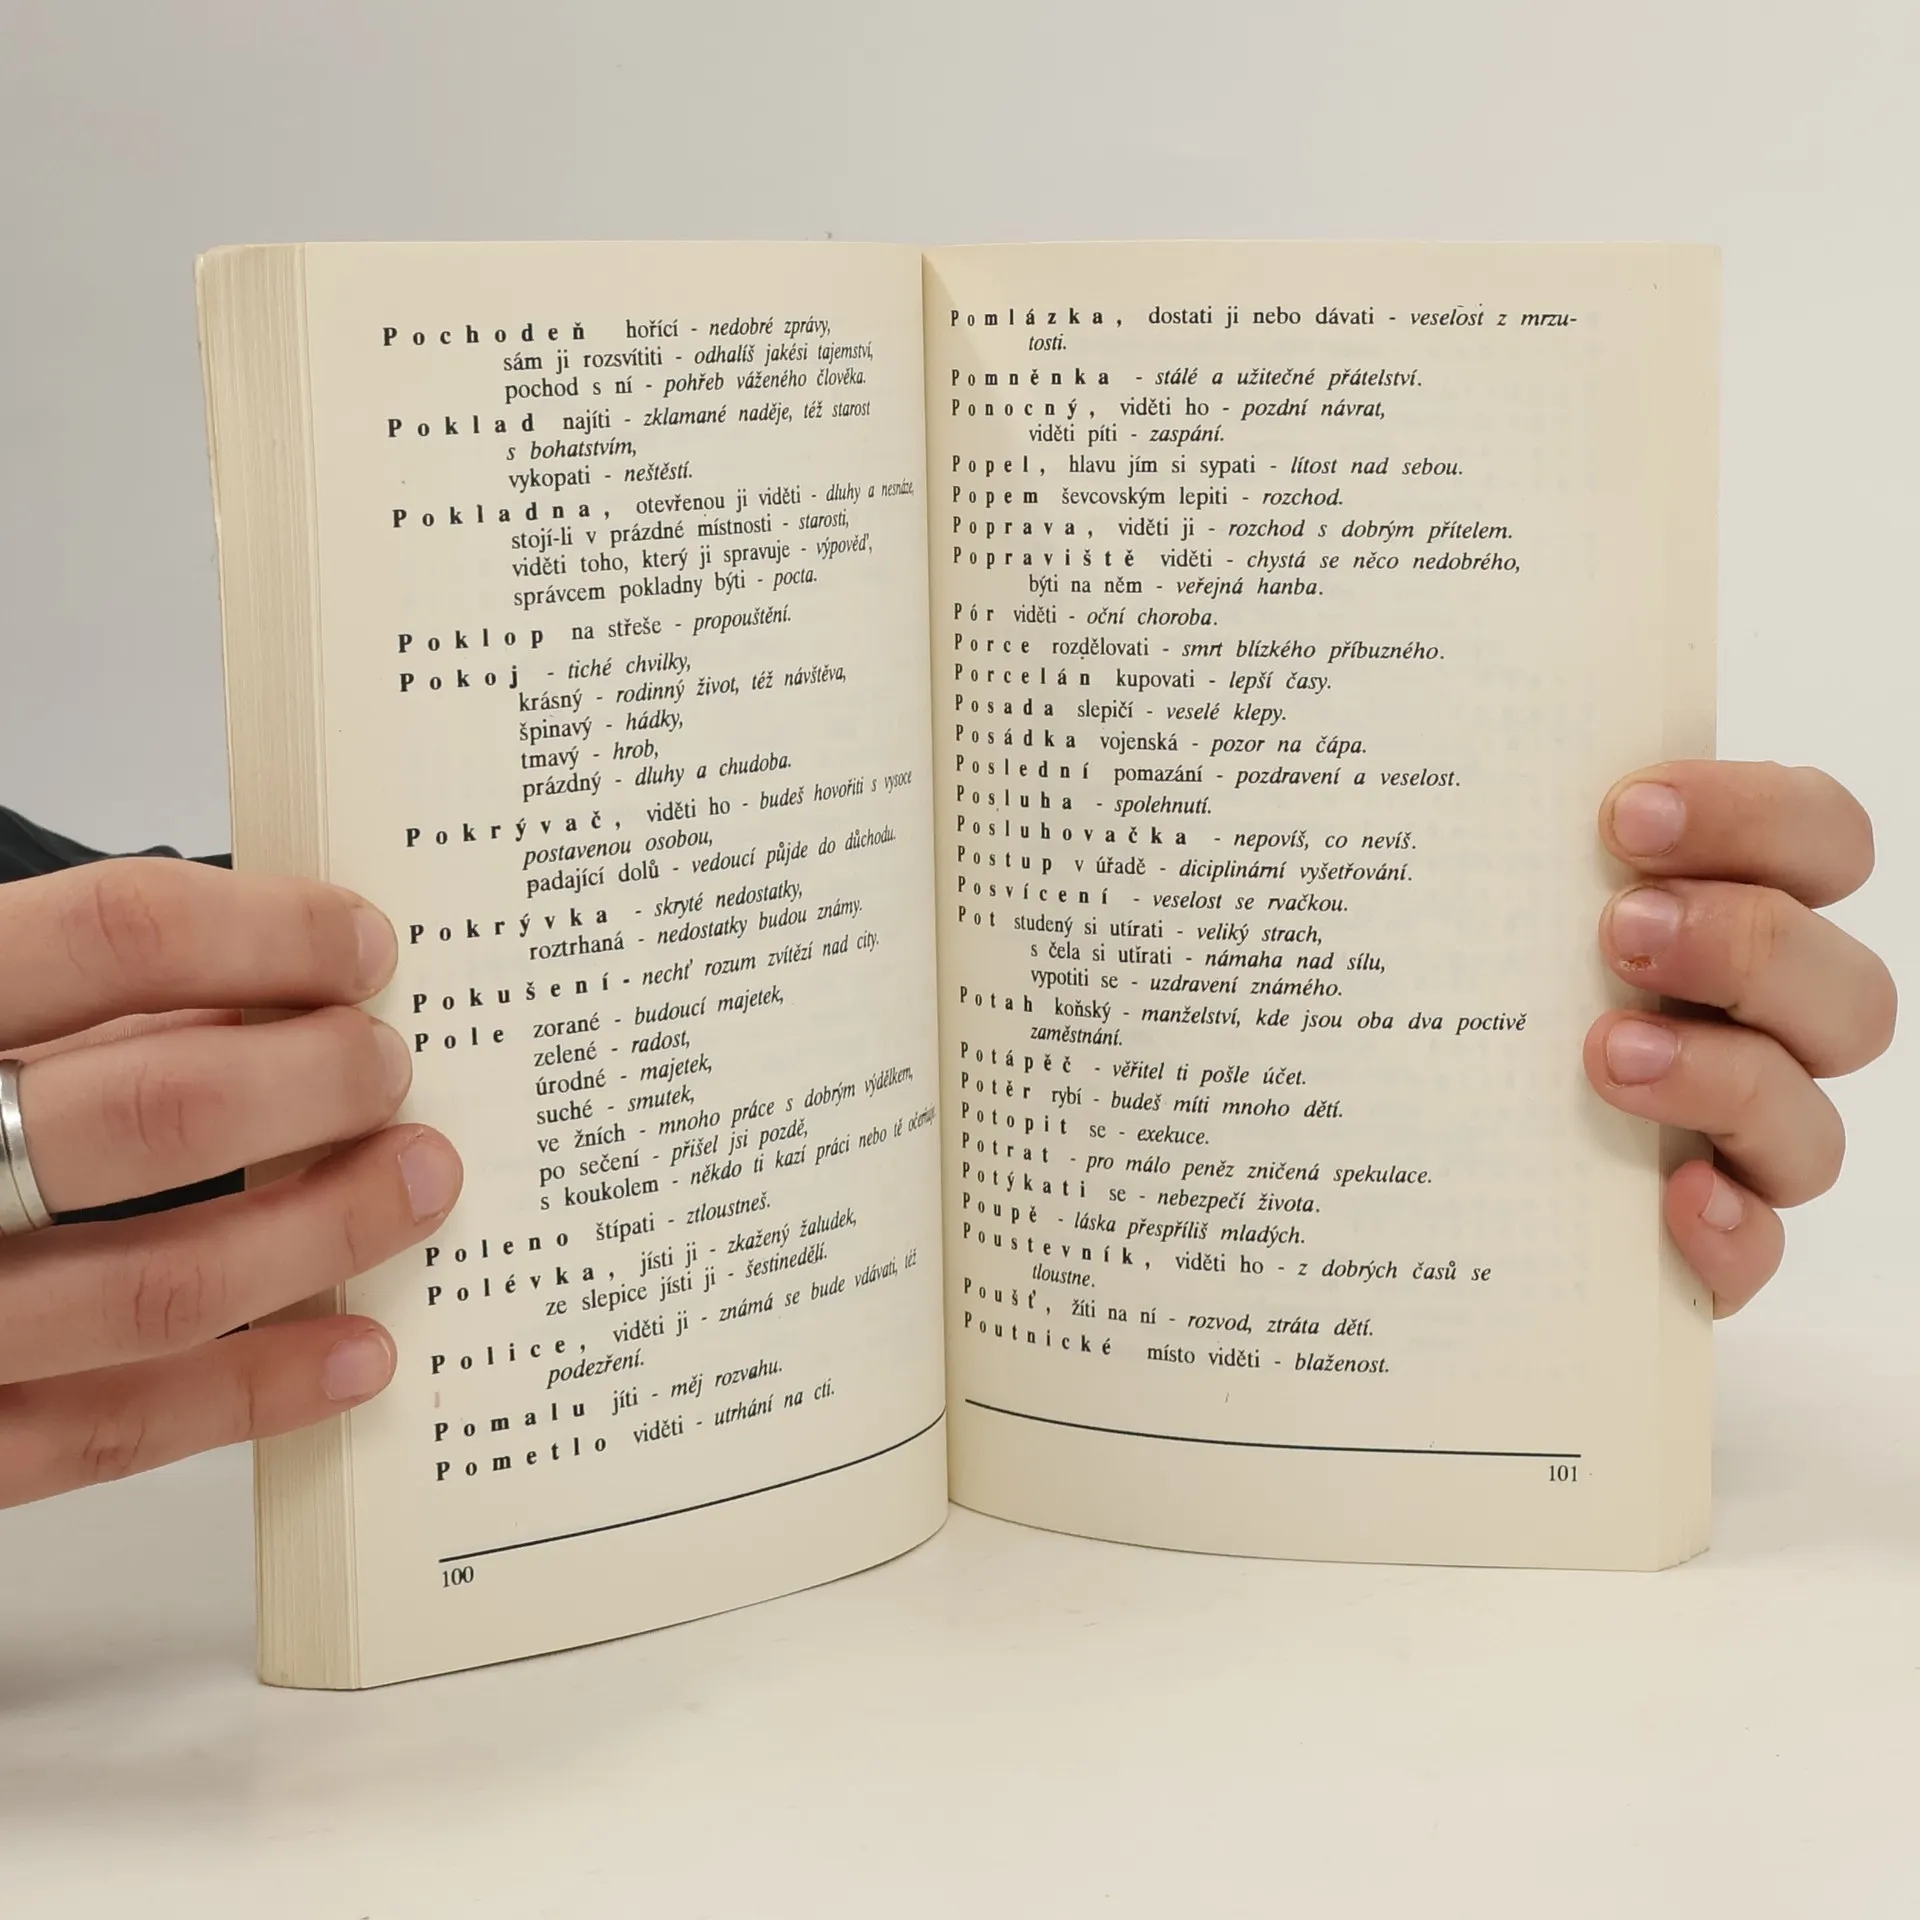 Pochodeň hořící - nedobré zprávy,
sám ji rozsvítiti - odhalíš jakési tajemství,
pochod s ní - pohřeb váženého člověka.
Poklad najíti - zklamané naděje, též starost
s bohatstvím,
vykopati - neštěstí.
Pokladna, otevřenou ji viděti - dluhy a nesnáze,
stojí-li v prázdné místnosti - starosti,
viděti toho, který ji spravuje - výpověď,
správcem pokladny býti - pocta.
Poklop na střeše - propouštění.
Pokoj - tiché chvilky,
krásný - rodinný život, též návštěva,
špinavý - hádky,
tmavý - hrob,
prázdný - dluhy a chudoba.
Pokrývač, viděti ho - budeš hovořiti s vysoce
postavenou osobou,
padající dolů - vedoucí půjde do důchodu.
Pokrývka - skryté nedostatky,
roztrhaná - nedostatky budou známy.
Pokušení - nechť rozum zvítězí nad city.
Pole zorané - budoucí majetek,
zelené - radost,
úrodné - majetek,
suché - smutek,
ve žních - mnoho práce s dobrým výdělkem,
po sečení - přišel jsi pozdě,
s koukolem - někdo ti kazí práci nebo tě očerňuje.
Poleno štípati - ztloustneš.
Polévka, jísti ji - zkažený žaludek,
ze slepice jísti ji - šestinedělí.
Police, viděti ji - známá se bude vdávati, též
podezření.
Pomalu jíti - měj rozvahu.
Pometlo viděti - utrhání na cti.
100
Pomlázka, dostati ji nebo dávati - veselost z mrzu-
tosti.
Pomněnka - stálé a užitečné přátelství.
Ponocný, viděti ho - pozdní návrat,
viděti píti - zaspání.
Popel, hlavu jím si sypati - lítost nad sebou.
Popem ševcovským lepiti - rozchod.
Poprava, viděti ji - rozchod s dobrým přítelem.
Popraviště viděti - chystá se něco nedobrého,
býti na něm - veřejná hanba.
Pór viděti - oční choroba.
Porce rozdělovati - smrt blízkého příbuzného.
Porcelán kupovati - lepší časy.
Posada slepičí - veselé klepy.
Posádka vojenská - pozor na čápa.
Poslední pomazání - pozdravení a veselost.
Posluha - spolehnutí.
Posluhovačka - nepovíš, co nevíš.
Postup v úřadě - diciplinární vyšetřování.
Posvícení - veselost se rvačkou.
Pot studený si utírati - veliký strach,
s čela si utírati - námaha nad sílu,
vypotiti se - uzdravení známého.
Potah koňský - manželství, kde jsou oba dva poctivě
zaměstnání.
Potápěč - věřitel ti pošle účet.
Potěr rybí - budeš míti mnoho dětí.
Potopit se - exekuce.
Potrat - pro málo peněz zničená spekulace.
Potýkati se - nebezpečí života.
Poupě - láska přespříliš mladých.
Poustevník, viděti ho - z dobrých časů se
tloustne.
Poušť, žíti na ní - rozvod, ztráta dětí.
Poutnické místo viděti - blaženost.
101